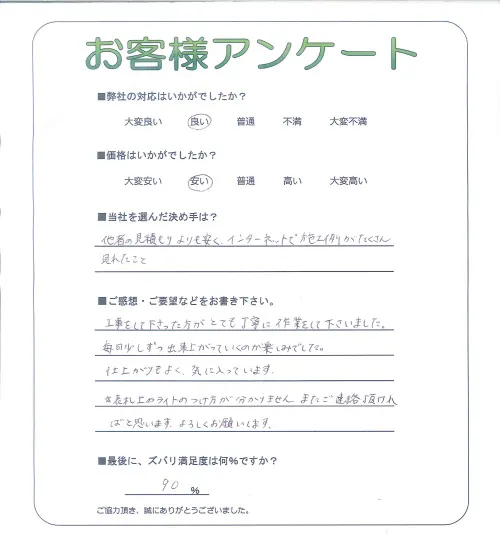 お客様アンケート
■弊社の対応はいかがでしたか？
大変良い 良い 普通 不満 大変不満
■価格はいかがでしたか？
大変安い 安い 普通 高い 大変高い
■当社を選んだ決め手は？
他者の見積もりよりも安く、インターネットで施工例がたくさん
見れたこと
■ご感想・ご要望などをお書き下さい。
工事をして下さった方がとても丁寧に作業をして下さいました。
毎日少しずつ出来上がっていくのが楽しみでした。
仕上がりもよく、気に入っています。
表札上のライトのつけ方が分かりません。またご連絡頂けれ
ばと思います。よろしくお願いします。
■最後に、ズバリ満足度は何％ですか？
90 %
ご協力頂き、誠にありがとうございました。